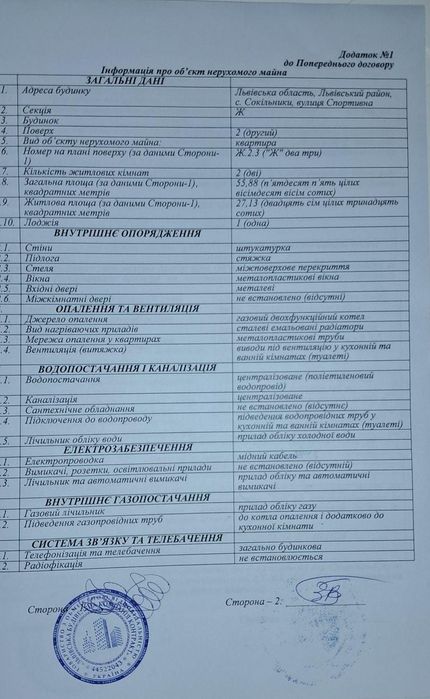 Додаток №1
до Попереднього договору
Інформація про об'єкт нерухомого майна
ЗАГАЛЬНІ ДАНІ
1. Адреса будинку Львівська область, Львівський район,
с. Сокільники, вулиця Спортивна
2. Секція Ж
3. Будинок
4. Поверх 2 (другий)
5. Вид об'єкту нерухомого майна: квартира
6. Номер на плані поверху (за даними Сторони-1) Ж.2.3 ("Ж" два три)
7. Кількість житлових кімнат 2 (дві)
8. Загальна площа (за даними Сторони-1), 55,88 (п'ятдесят п'ять цілих
квадратних метрів вісімдесят вісім сотих)
9. Житлова площа (за даними Сторони-1), 27,13 (двадцять сім цілих тринадцять
квадратних метрів сотих)
.10. Лоджія 1 (одна)
ВНУТРІШНЄ ОПОРЯДЖЕННЯ
.1. Стіни штукатурка
.2. Підлога стяжка
.3. Стеля міжповерхове перекриття
.4. Вікна металопластикові вікна
.5. Вхідні двері металеві
.6. Міжкімнатні двері не встановлено (відсутні)
ОПАЛЕННЯ ТА ВЕНТИЛЯЦІЯ
.1. Джерело опалення газовий двохфункційний котел
.2. Вид нагріваючих приладів сталеві емальовані радіатори
.3. Мережа опалення у квартирах металопластикові труби
.4. Вентиляція (витяжка) виводи під вентиляцію у кухонній та
ванній кімнатах (туалеті)
ВОДОПОСТАЧАННЯ І КАНАЛІЗАЦІЯ
.1. Водопостачання централізоване (поліетиленовий
водопровід)
.2. Каналізація централізоване
.3. Сантехнічне обладнання не встановлено (відсутнє)
.4. Підключення до водопроводу підведення водопровідних труб у
кухонній та ванній кімнатах (туалеті)
.5. Лічильник обліку води прилад обліку холодної води
ЕЛЕКТРОЗАБЕЗПЕЧЕННЯ
.1. Електропроводка мідний кабель
.2. Вимикачі, розетки, освітлювальні прилади не встановлено (відсутній)
.3. Лічильник та автоматичні вимикачі прилад обліку та автоматичні
вимикачі
ВНУТРІШНЄ ГАЗОПОСТАЧАННЯ
.1. Газовий лічильник прилад обліку газу
.2. Підведення газопровідних труб до котла опалення і додатково до
кухонної кімнати
СИСТЕМА ЗВ'ЯЗКУ ТА ТЕЛЕБАЧЕННЯ
1. Телефонізація та телебачення загально будинкова
2. Радіофікація не встановлюється
Сторона – 2:
Сторона
44522043
УКРАЇНА